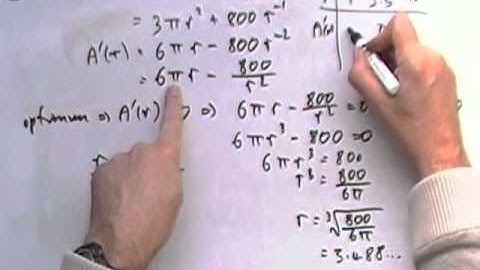 = 3πr² + 800r⁻¹
A'(r) = 6πr - 800r⁻²
= 6πr - 800/r²
optimum ⇒ A'(r) ⇒ 6πr - 800/r² = 0
6πr³ - 800 = 0
6πr³ = 800
r³ = 800/6π
r = ³√(800/6π)
= 3.488...
A'(r)